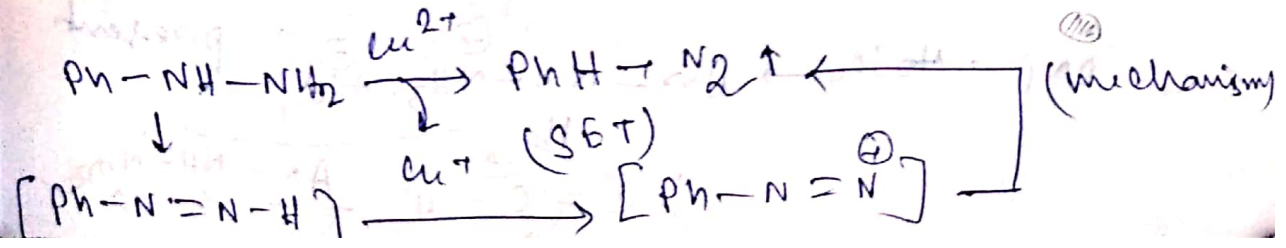 Cu²⁺
Ph-NH-NH₂ → PhH + N₂ ↑ ← (mechanism)
↓ Cu⁺ (SET)
[Ph-N=N-H] → [Ph-N=N⊕]